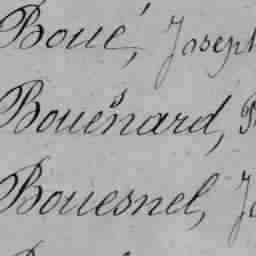 Boué, Joseph
Bouësnard,
Bouesnel,